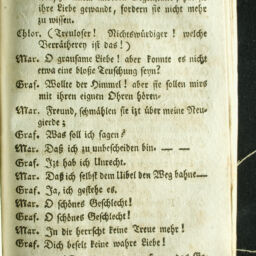 ihre Liebe gewandt, fordern sie nicht mehr
zu wissen.
Chlor. (Treuloser! Nichtswürdiger! welche
Verrätherey ist das!)
Mar. O grausame Liebe! aber konnte es nicht
etwa eine bloße Teuschung seyn?
Graf. Wollte der Himmel! aber sie sollen mirs
mit ihren eignen Ohren hören.
Mar. Freund, schmählen sie izt über meine Neu-
gierde;
Graf. Was soll ich sagen?
Mar. Daß ich zu unbescheiden bin. — —
Graf. Izt hab ich Unrecht.
Mar. Daß ich selbst dem Uibel den Weg bahne—
Graf. Ja, ich gestehe es.
Mar. O schönes Geschlecht!
Graf. O schönes Geschlecht!
Mar. In dir herrscht keine Treue mehr!
Graf. Dich beselt keine wahre Liebe!